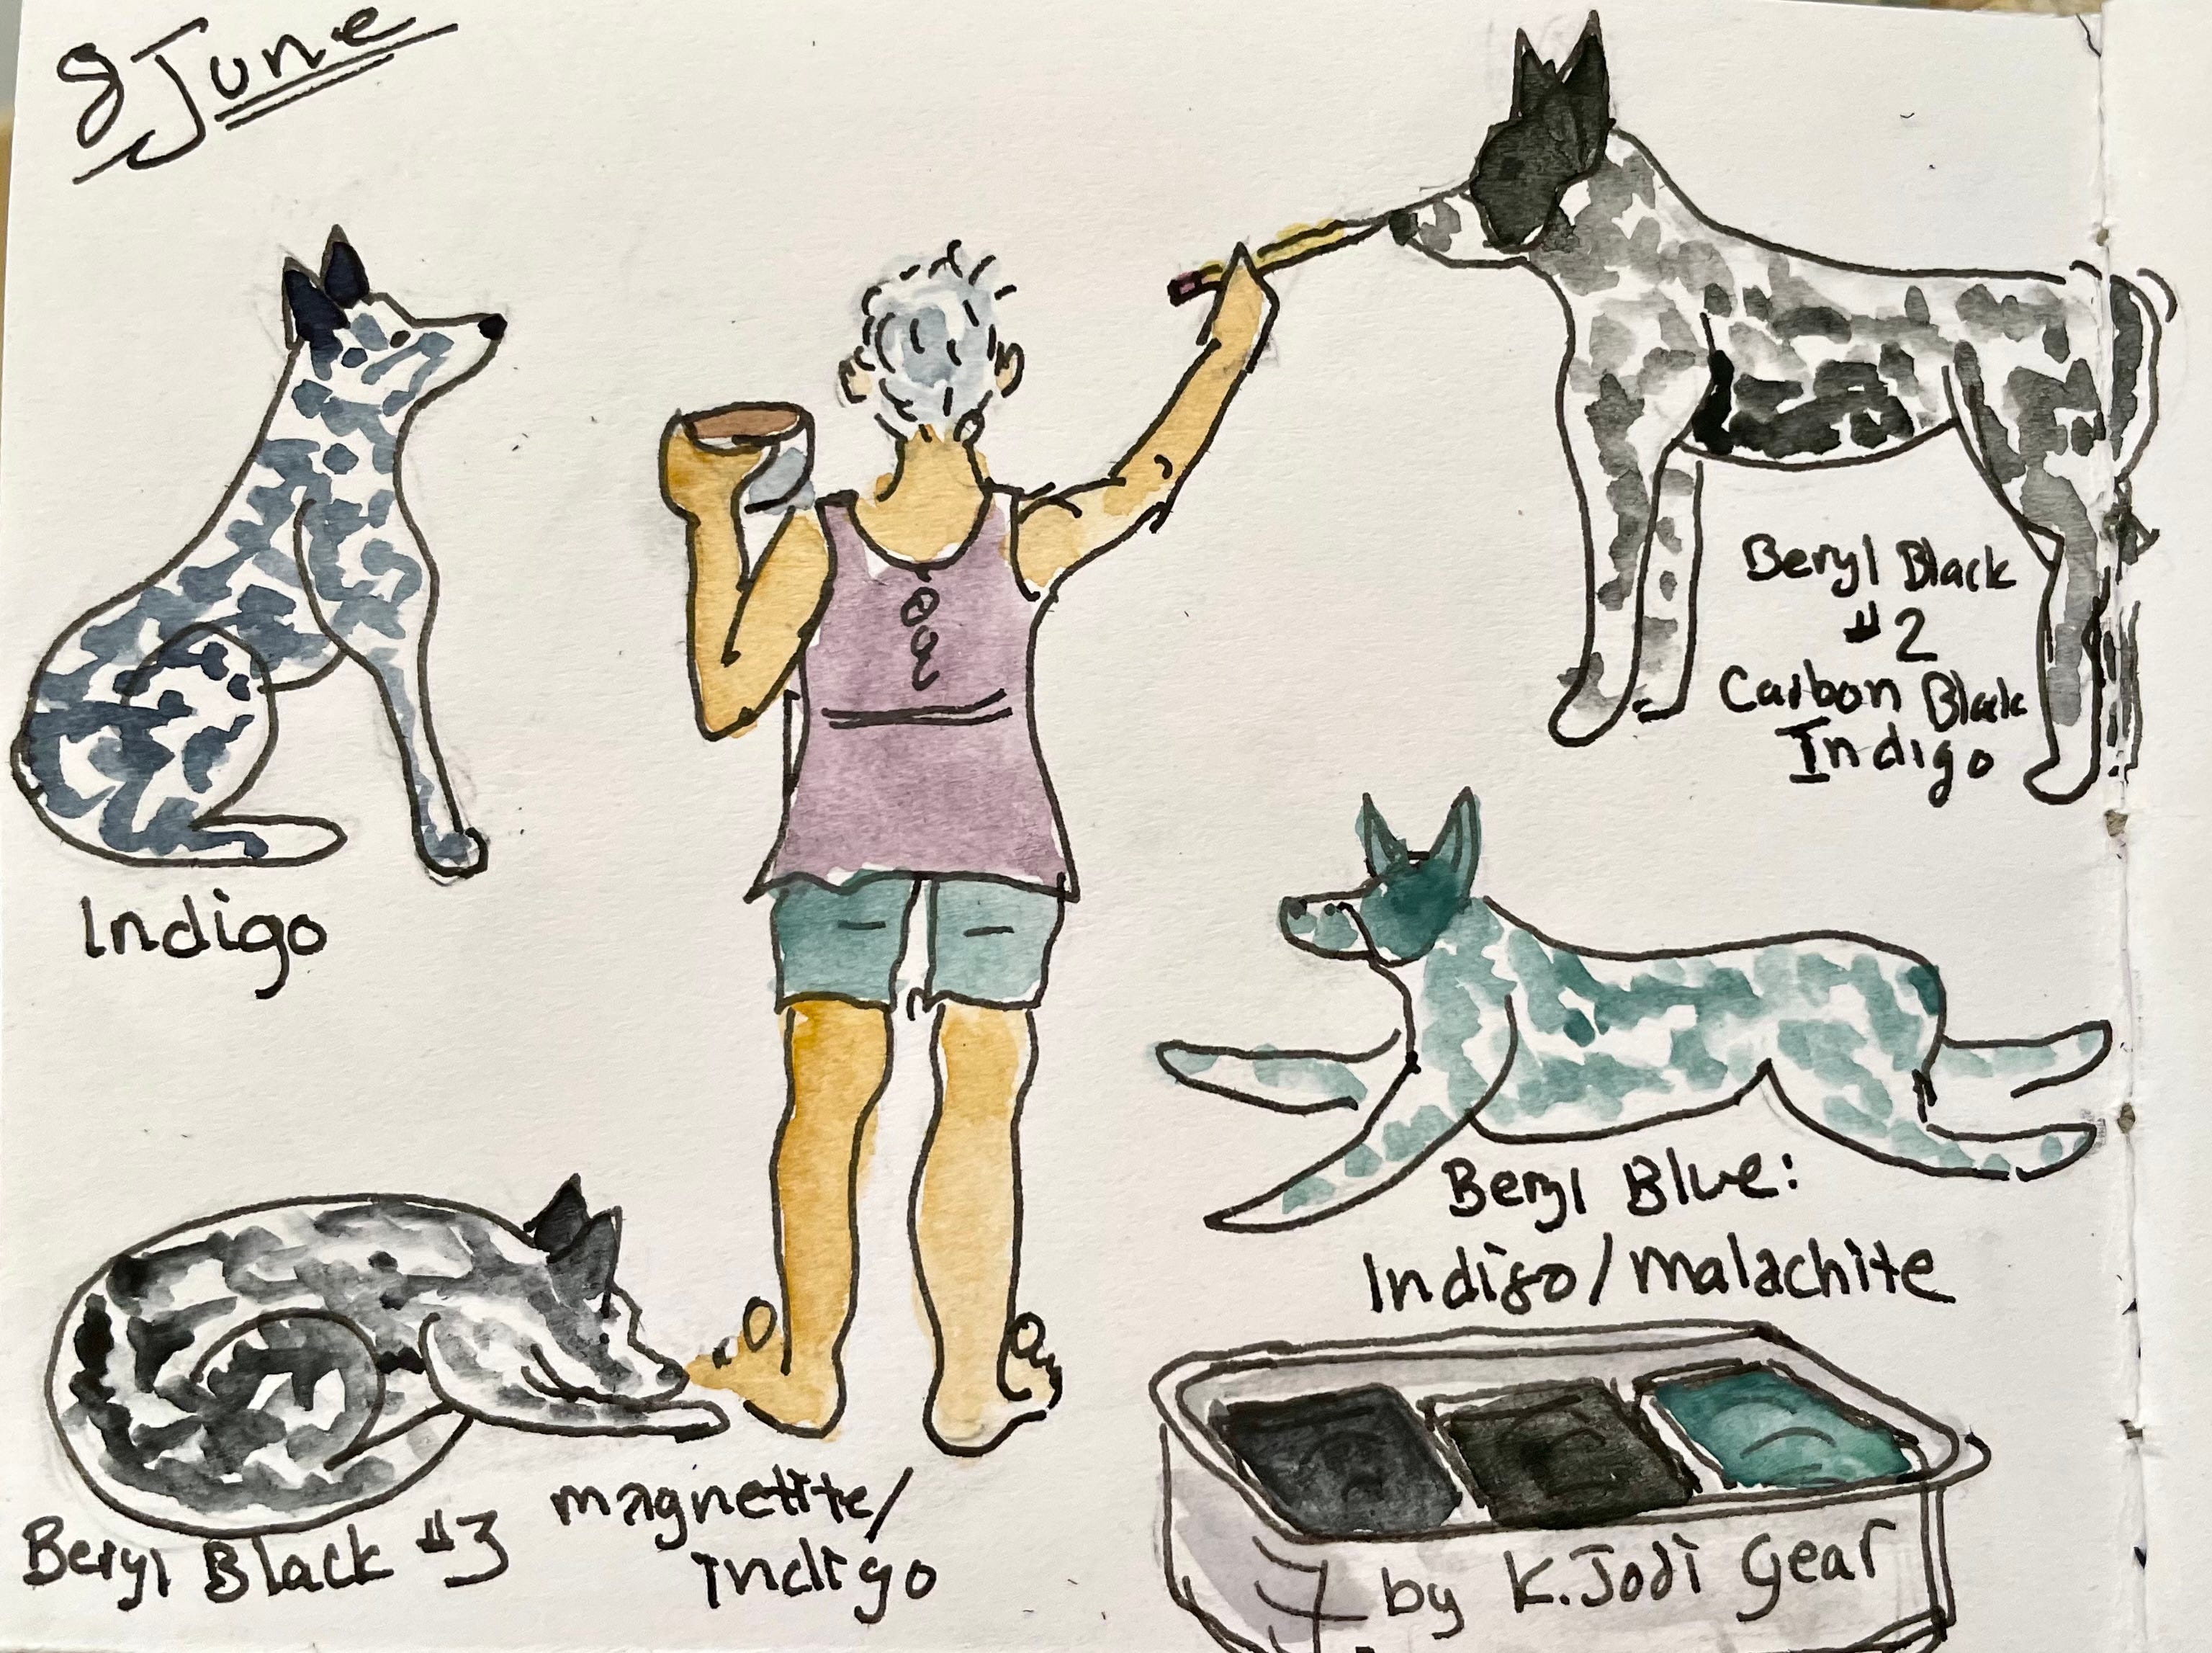 8 June
Indigo
Beryl Black
#2
Carbon Black
Indigo
Beryl Blue:
Indigo/malachite
Beryl Black #3
magnetite/
indigo
by K. Jodi Gear